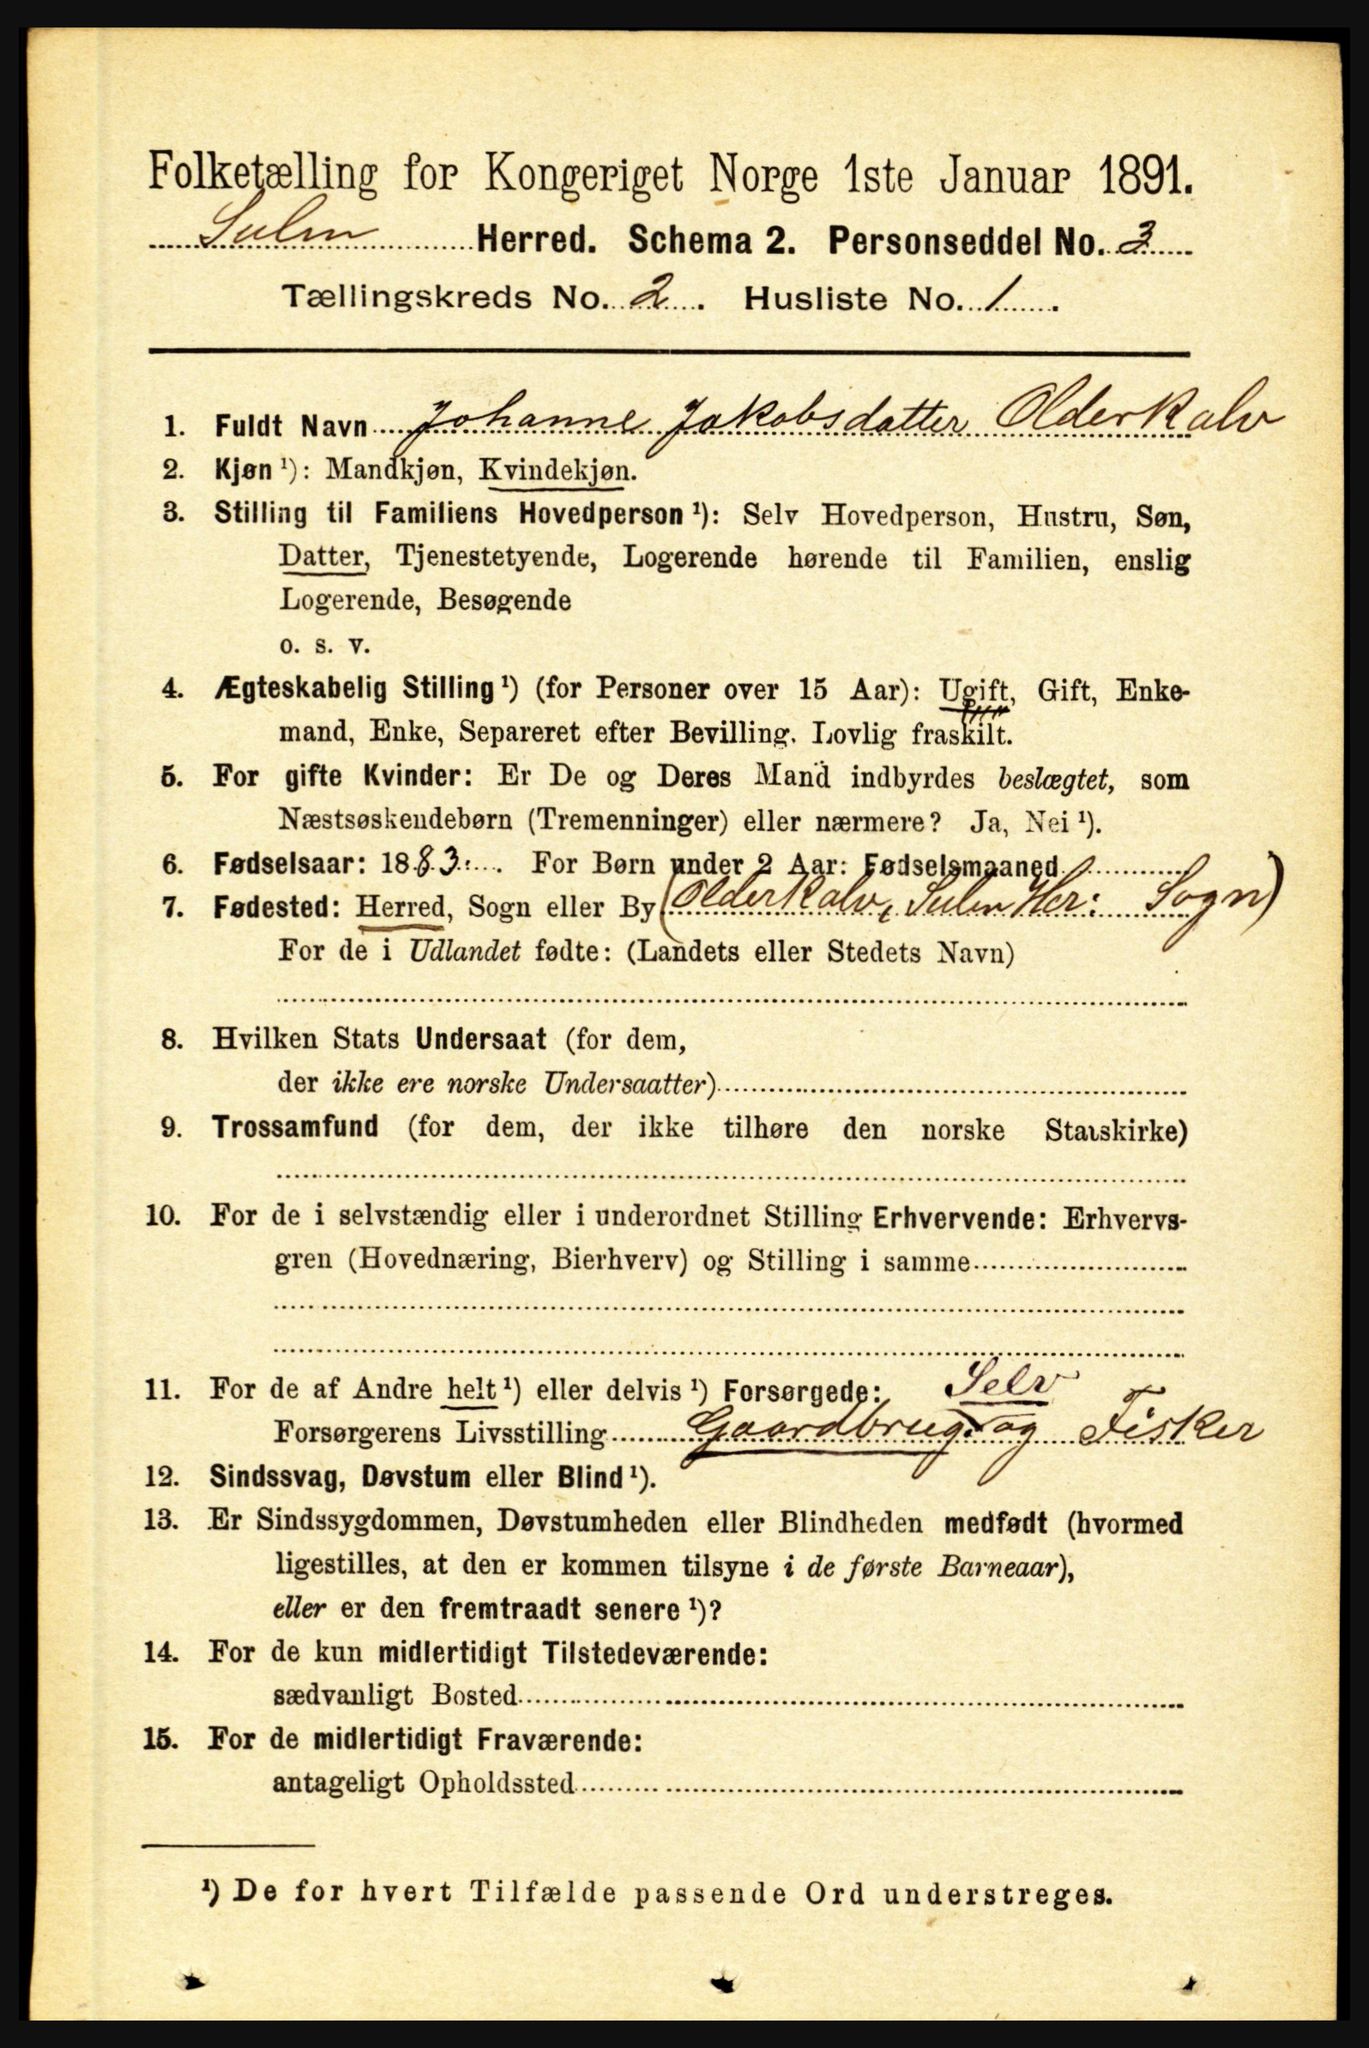 Folketælling for Kongeriget Norge 1ste Januar 1891.
Sulen Herred. Schema 2. Personseddel No. 3
Tællingskreds No. 2. Husliste No. 1.
1. Fuldt Navn Johanne Jakobsdatter Olderkalv
2. Kjøn ¹): Mandkjøn, Kvindekjøn.
3. Stilling til Familiens Hovedperson ¹): Selv Hovedperson, Hustru, Søn,
Datter, Tjenestetyende, Logerende hørende til Familien, enslig
Logerende, Besøgende
o. s. v.
4. Ægteskabelig Stilling ¹) (for Personer over 15 Aar): Ugift, Gift, Enke-
mand, Enke, Separeret efter Bevilling. Lovlig fraskilt.
5. For gifte Kvinder: Er De og Deres Mand indbyrdes beslægtet, som
Næstsøskendebørn (Tremenninger) eller nærmere? Ja, Nei ¹).
6. Fødselsaar: 1883. For Børn under 2 Aar: Fødselsmaaned
7. Fødested: Herred, Sogn eller By (Olderkalv, Sulen Her: Sogn)
For de i Udlandet fødte: (Landets eller Stedets Navn)
8. Hvilken Stats Undersaat (for dem,
der ikke ere norske Undersaatter)
9. Trossamfund (for dem, der ikke tilhøre den norske Statskirke)
10. For de i selvstændig eller i underordnet Stilling Erhvervende: Erhvervs-
gren (Hovednæring, Bierhverv) og Stilling i samme
11. For de af Andre helt ¹) eller delvis ¹) Forsørgede: Selv
Forsørgerens Livsstilling Gaardbrug. og Fisker
12. Sindssvag, Døvstum eller Blind ¹).
13. Er Sindssygdommen, Døvstumheden eller Blindheden medfødt (hvormed
ligestilles, at den er kommen tilsyne i de første Barneaar),
eller er den fremtraadt senere ¹)?
14. For de kun midlertidigt Tilstedeværende:
sædvanligt Bosted
15. For de midlertidigt Fraværende:
antageligt Opholdssted
¹) De for hvert Tilfælde passende Ord understreges.